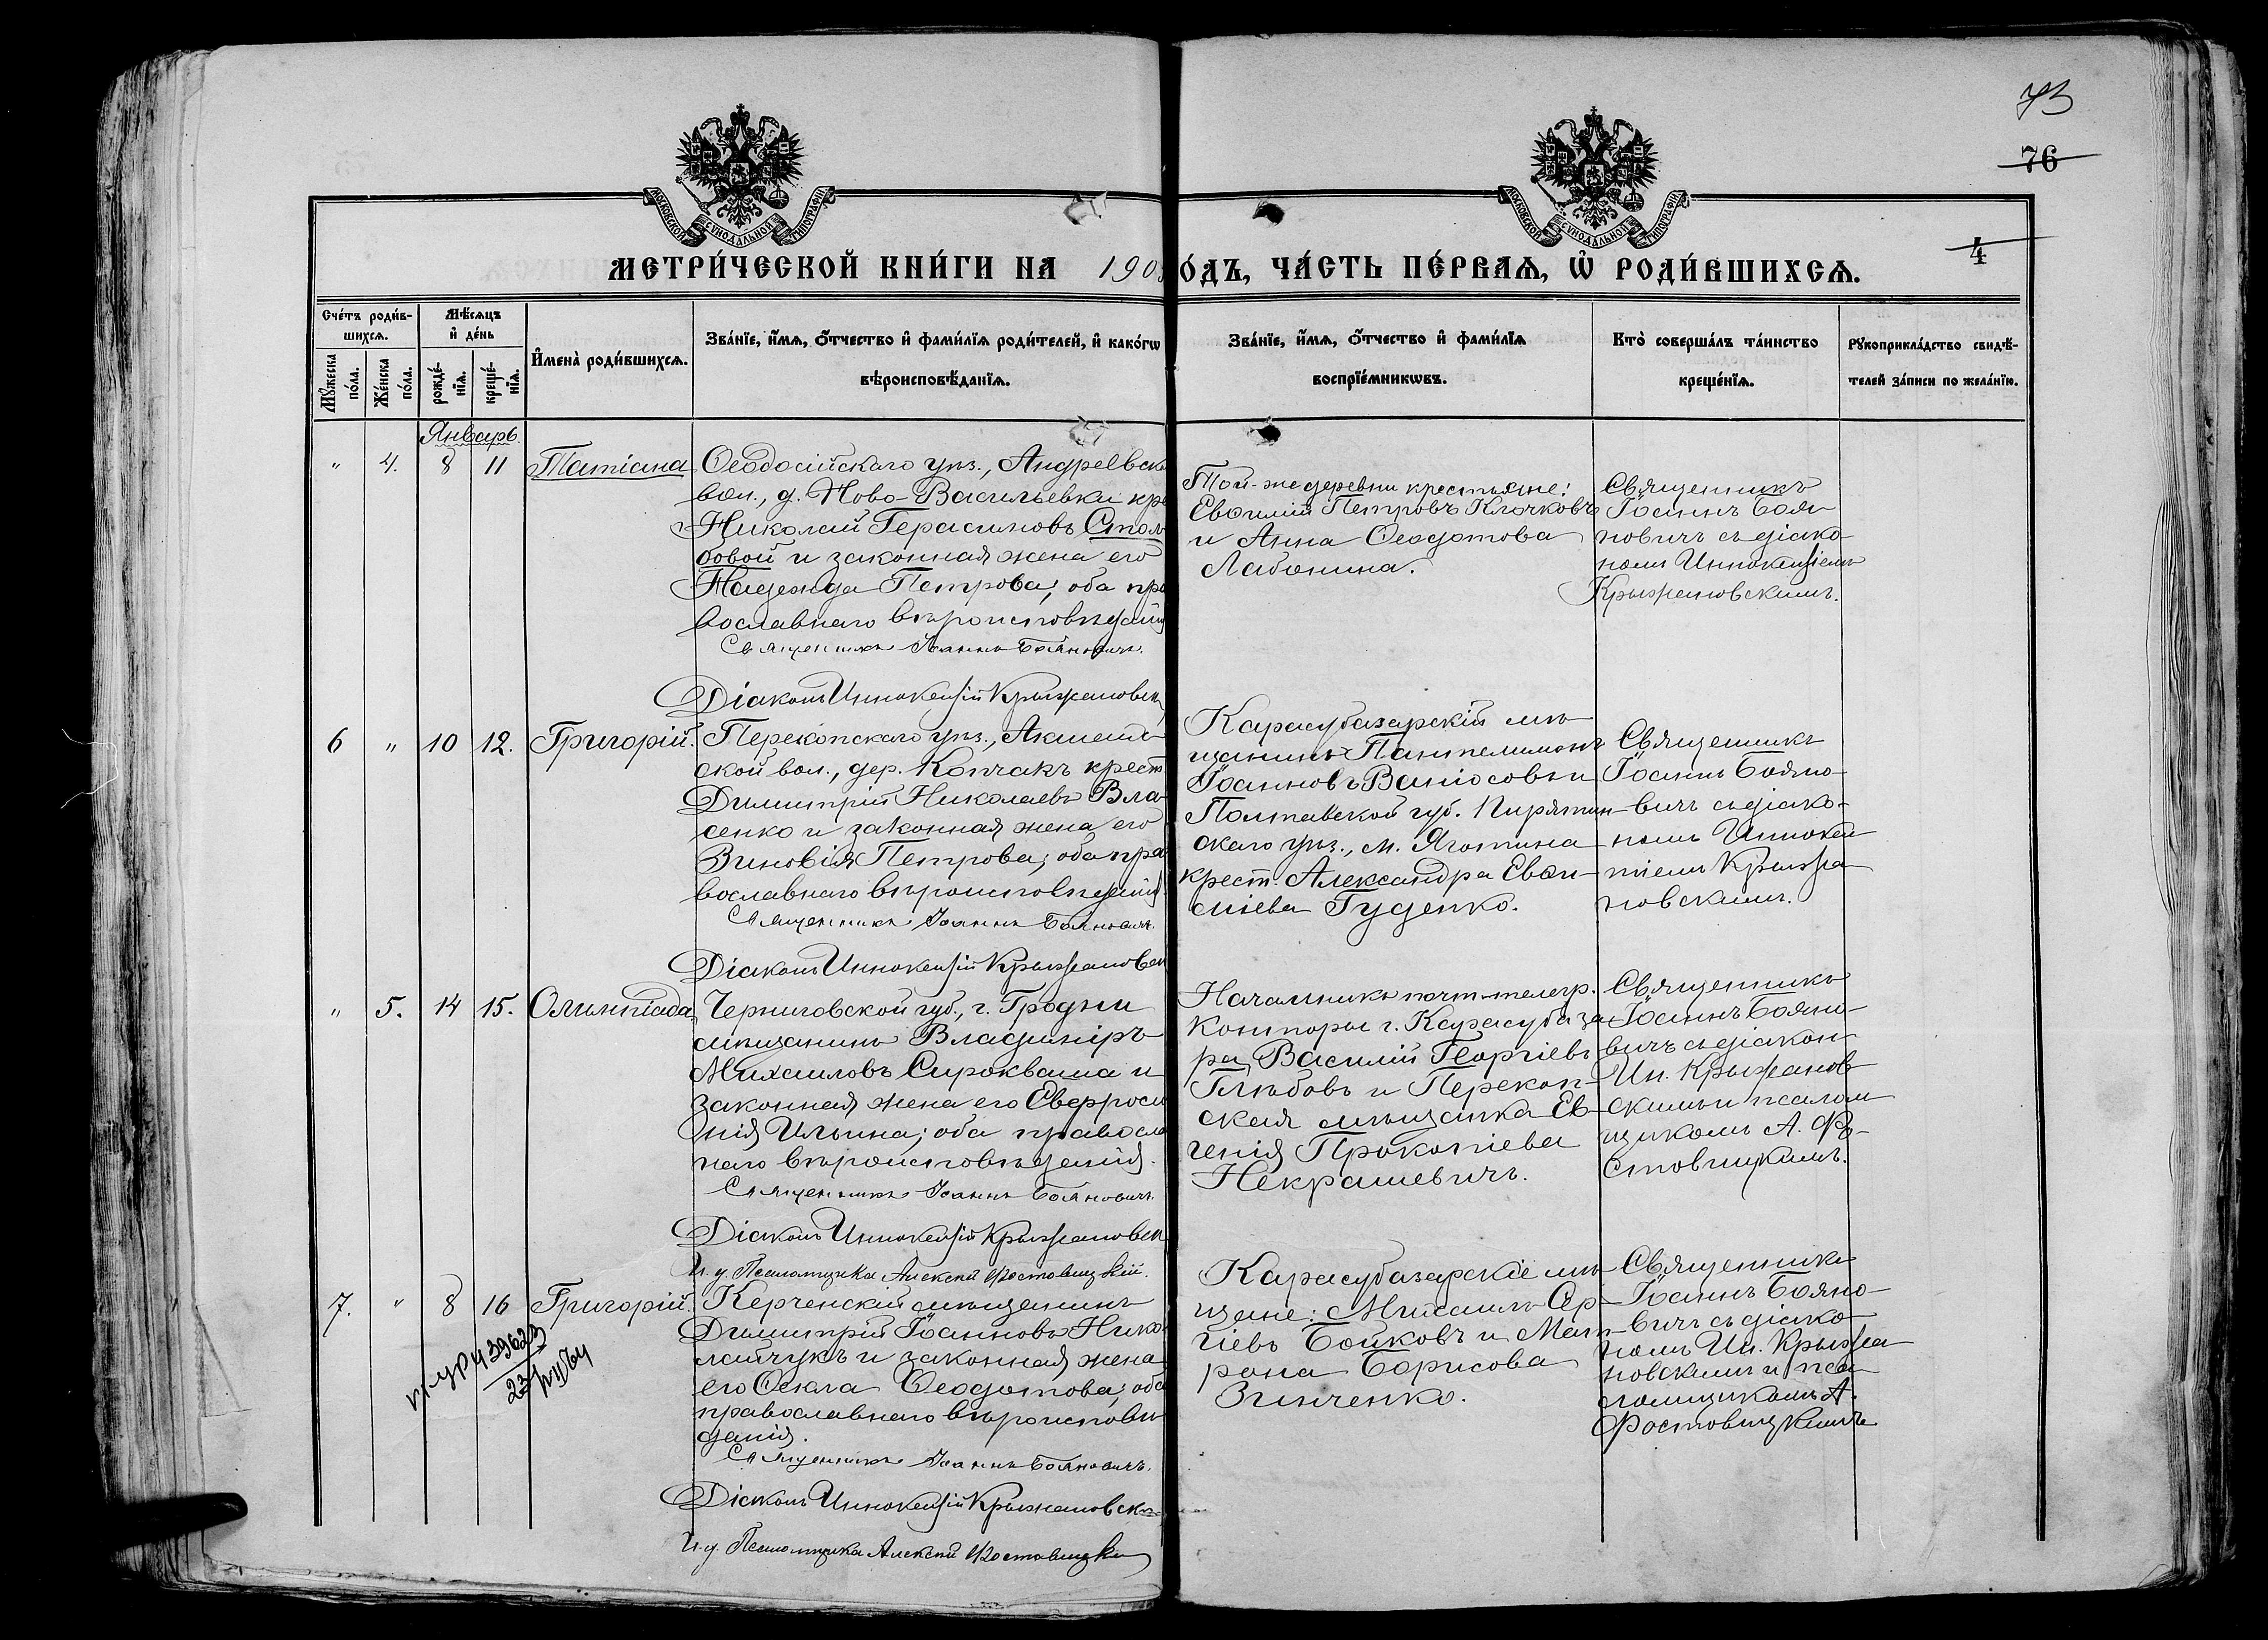 73
76
4
МОСКОВСКОЙ СѴНОДАЛЬНОЙ ТИПОГРАФІИ
МОСКОВСКОЙ СѴНОДАЛЬНОЙ ТИПОГРАФІИ
МЕТРИ́ЧЕСКОЙ КНИ́ГИ НА 190
ОДЪ, ЧА́СТЬ ПЕ́РВАѦ, Ѡ РОДИ́ВШИХСѦ.
Сче́тъ роди́в-
шихсѧ.
Мꙋ́жеска
по́ла.
Же́нска
по́ла.
Мѣ́сѧцъ
и де́нь
рожде́-
нїѧ.
креще́-
нїѧ.
Имена̀ роди́вшихсѧ.
Зва́нїе, и́мѧ, о́тчество и фами́лїѧ роди́телей, и како́гѡ
вѣроисповѣ́данїѧ.
Зва́нїе, и́мѧ, о́тчество и фами́лїѧ
воспрїе́мникѡвъ.
Кто̀ соверша́лъ та́инство
креще́нїѧ.
Рꙋкоприкла́дство свидѣ́-
телей за́писи по жела́нїю.
Январь.
" 4. 8 11 Татіана
Ѳеодосійскаго уѣз., Андреевск
вол., д. Ново-Васильевки кре
Николай Герасимовъ Стол
бовой и законная жена его
Надежда Петрова; оба пра
вославнаго вѣроисповѣданія
Священникъ Іоаннъ Бояновичъ.
Діаконъ Иннокентій Крыжановск
Той-же деревни крестьяне:
Евѳимій Петровъ Клочковъ
и Анна Ѳеодотова
Лабонина.
Священникъ
Іоаннъ Бояно
новичъ съ діако-
номъ Иннокентіемъ
Крыжановскимъ.
6 " 10 12. Григорій.
Перекопскаго уѣз., Акшеит-
ской вол., дер. Копчакъ крест
Димитрій Николаевъ Вла-
сенко и законная жена его
Зиновія Петрова; оба пра
вославнаго вѣроисповѣданія.
Священникъ Іоаннъ Бояновичъ.
Діаконъ Иннокентій Крыжановск
Карасубазарскій мѣ-
щанинъ Пантелимонъ
Іоанновъ Ваніосовъ и
Полтавской губ. Пирятин-
скаго уѣз., м. Яготина
крест. Александра Евѳи-
міева Гуденко.
Священникъ
Іоаннъ Бояно-
вичъ съ діако-
номъ Иннокен
тіемъ Крыжа
новскимъ.
" 5. 14 15. Олимпіада
Черниговской губ., г. Городни
мѣщанинъ Владиміръ
Михаиловъ Сирокваша и
законная жена его Евфроси
нія Ильина; оба правосла
наго вѣроисповѣданія.
Священникъ Іоаннъ Бояновичъ.
Діаконъ Иннокентій Крыжановск
И. д. Псаломщика Алексѣй Фостовицкій.
Начальникъ почт-телегр.
конторы г. Карасубаза-
ра, Василій Георгіевъ
Глѣбовъ и Перекоп-
ская мѣщанка Ев-
генія Прокопіева
Некрашевичъ.
Священникъ
Іоаннъ Бояно-
вичъ съ діакон-
Ин. Крыжанов
скимъ и псалом
щикомъ А. Фо-
стовицкимъ.
7. " 8 16 Григорій.
Керченскій мѣщанинъ
Димитрій Іоанновъ Нико-
лайчукъ и законная жена
его Ѳекла Ѳеодотова; оба
православнаго вѣроисповѣ-
данія.
Священникъ Іоаннъ Бояновичъ.
Діаконъ Иннокентій Крыжановск
И. д. Псаломщика Алексѣй Фостовицкій
Карасубазарскіе мѣ-
щане: Михаилъ Сер-
гіевъ Бойковъ и Мат-
рона Борисова
Зинченко.
Священникъ
Іоаннъ Бояно-
вичъ съ діако-
номъ Ин. Крыжа
новскимъ и пса
ломщикомъ А.
Фостовицкимъ
39623